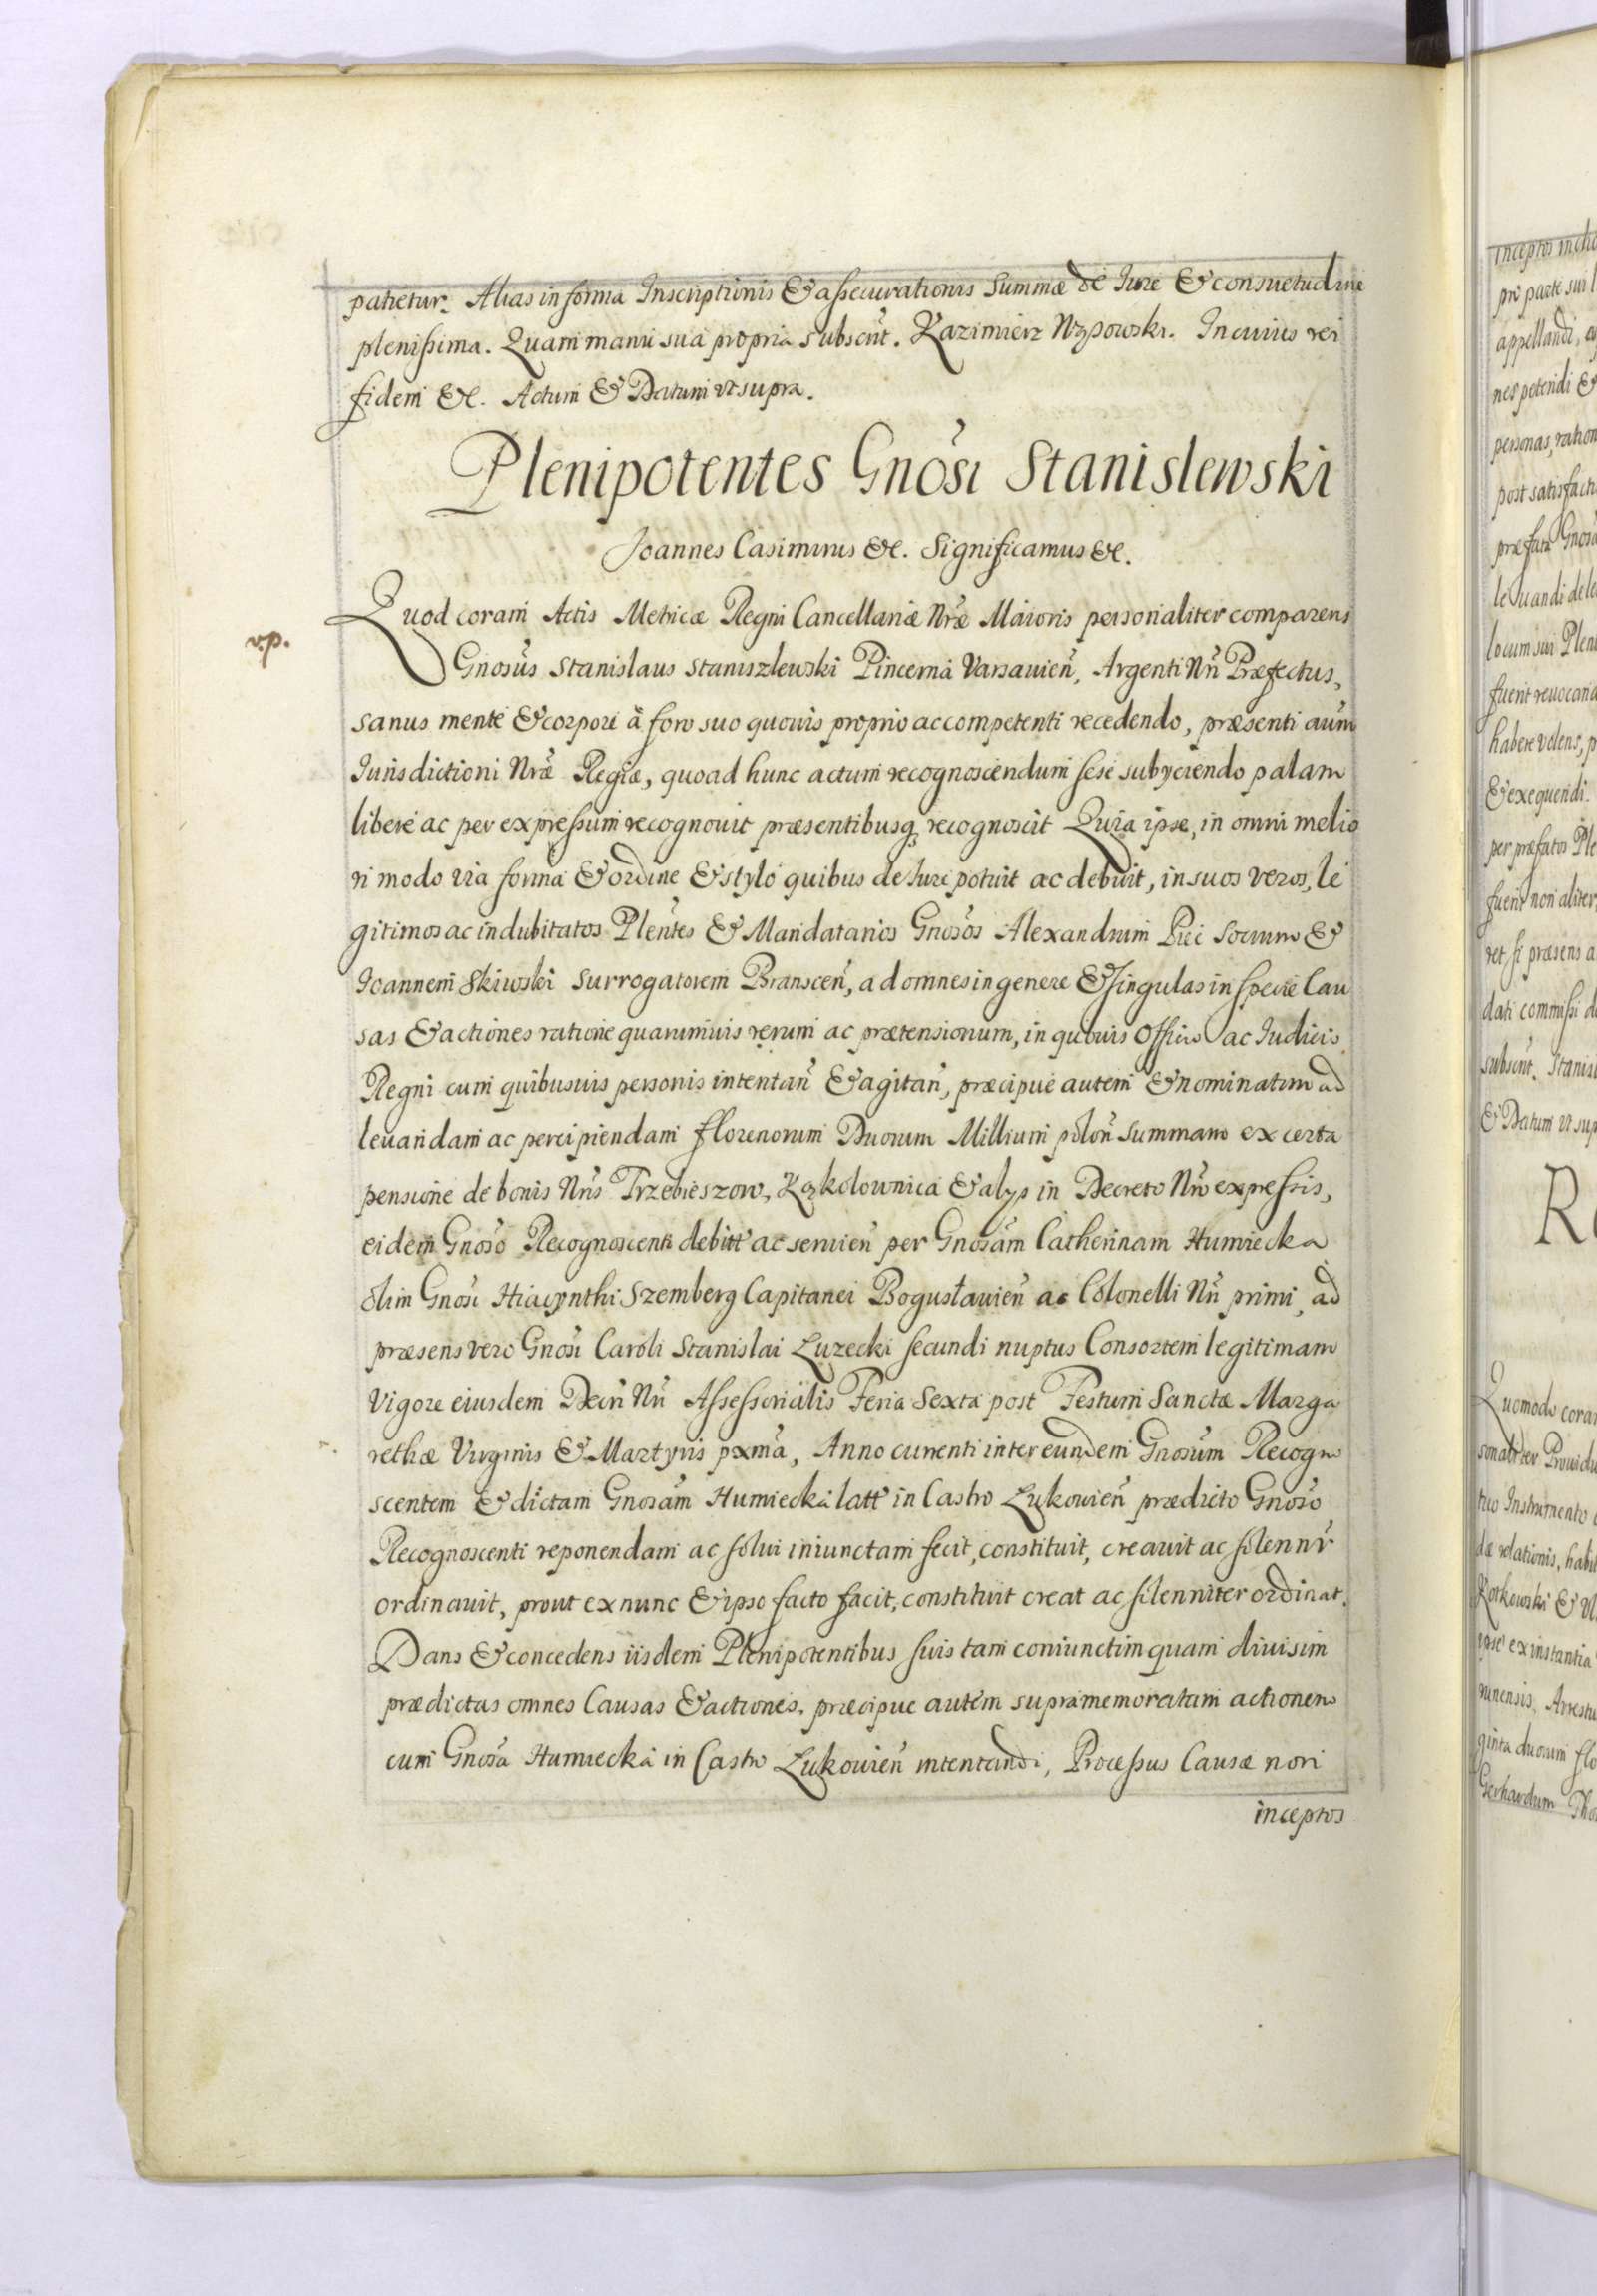 patietur. Alias in forma Inscriptionis & assecurationis Summæ de Iure & consuetudine
plenissima. Quam manu sua propria subscrit. Kazimierz In cuius rei
fidem &c. Actum & Datum vt supra.
Plenipotentes Gnosi Stanislewski
Joannes Casimirus &c. Significamus &c.
v.p.
Quod coram Actis Metricæ Regni Cancellariæ Nræ Maioris personaliter comparens
Gnosus Stanislaus Staniszlewski Pincerna Varsauien, Argenti Nri Præfectus,
sanus mente & corpore à foro suo quouis proprio ac competenti recedendo, præsenti aum
Iurisdictioni Nræ Regiæ, quoad hunc actum recognoscendum sese subyciendo palam
libere ac per expressum recognouit præsentibusq recognoscit Quia ipse, in omni melio
ri modo via forma & ordine & stylo quibus de Iure potuit ac debuit, in suos veros, le
gitimos ac indubitatos Plentes & Mandatarios Gnosos Alexandrum Piec Socium &
Joannem Skiwski Surrogatorem Branscen, ad omnes in genere & singulas in specie Cau
sas & actiones ratione quarumuis rerum ac prætensionum, in quibuis Officio ac Iudicis
Regni cum quibusuis personis intentan & agitan, præcipue autem & nominatim ad
leuandam ac percipiendam florenorum Duorum Millium polon summam ex certa
pensione de bonis Nris Trzebieszow, Kąkolownica & alys in Decreto Nro expressis,
eidem Gnoso Recognoscenti debitt ac seruien per Gnosam Catherinam Humiecka
olim Gnosi Hiacynthi Szemberg Capitanei Bogusłauien ac Colonelli Nri primi, ad
præsens vero Gnosi Caroli Stanislai Luzecki secundi nuptus Consortem legitimam
Vigore eiusdem Decri Nri Assessorialis Feria Sexta post Festum Sanctæ Marga
rethæ Virginis & Martyris pxma, Anno currenti inter eundem Gnosum Recogno
scentem & dictam Gnosam Humiecka latt in Castro Lukouien prædicto Gnoso
Recognoscenti reponendam ac solui iniunctam fecit, constituit, creauit ac solennr
ordinauit, prout ex nunc & ipso facto facit, constituit creat ac solenniter ordinat.
Dans & concedens iisdem Plenipotentibus suis tam coniunctim quam diuisim
prædictas omnes Causas & actiones, præcipue autem supramemoratam actionem
cum Gnosa Humiecka in Castro Lukouien intentandi, Processus Causæ nori
inceptos